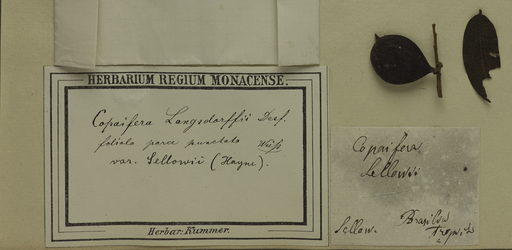 HERBARIUM REGIUM MONACENSE.
Copaifera Langsdorffii Desf.
foliola parce punctata
var. Sellowii (Hayne).
Herbar. Kummer.
Copaifera
Sellowii
Sellow. Brasilia